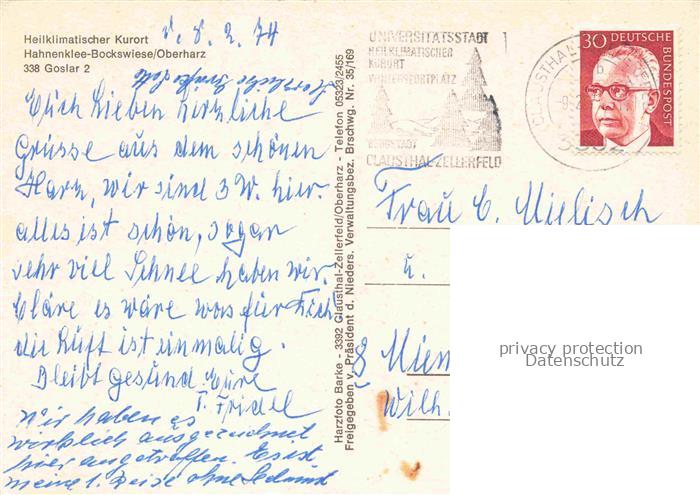 Heilklimatischer Kurort
Hahnenklee-Bockswiese/Oberharz
338 Goslar 2
d. 8. 2. 74
Euch Lieben herzliche
Grüsse aus dem schönen
Harz, wir sind 3 W. hier.
alles ist schön, sogar
sehr viel Schnee haben wir.
es wäre was für Euch
die Luft ist einmalig.
Bleibt gesund. Eure
T. Friedel
Wir haben es
wirklich ausgezeichnet
hier angetroffen. Es ist
meine 1. Reise ohne
Harzfoto Barke - 3392 Clausthal-Zellerfeld/Oberharz - Telefon 05323/2455
Freigegeben v. Präsident d. Nieders. Verwaltungsbez. Bschwg. Nr. 35/169
UNIVERSITÄTSSTADT
HEILKLIMATISCHER
KURORT
WINTERSPORTPLATZ
BERGSTADT
CLAUSTHAL-ZELLERFELD
30 DEUTSCHE
BUNDESPOST
Frau C. Mielisch
u.
8
Wilh.
privacy protection
Datenschutz